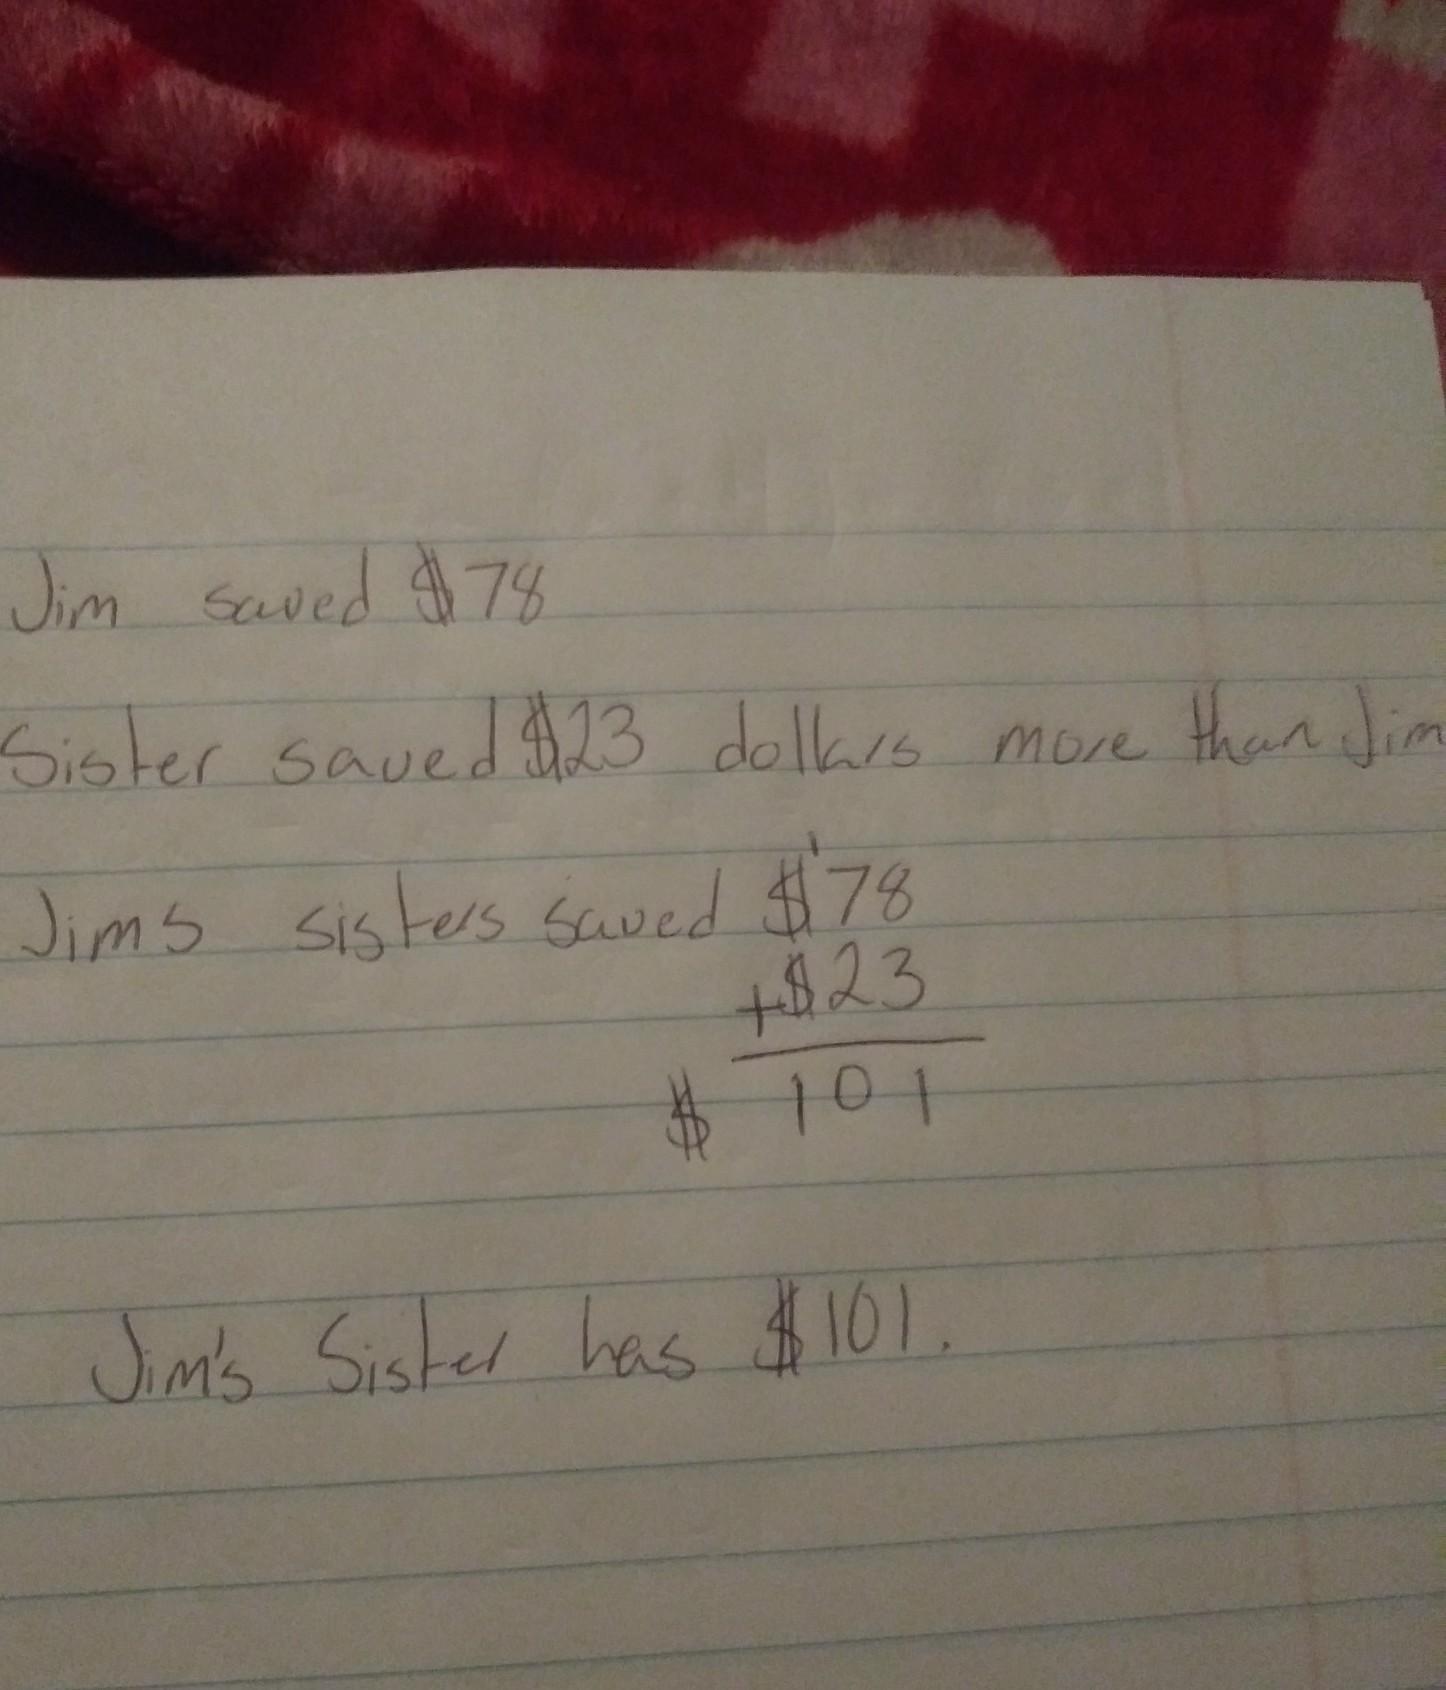 Jim saved $78
Sister saved $23 dollars more than Jim
Jims sisters saved $78
1
+$23
$ 101
Jim's Sister has $101.